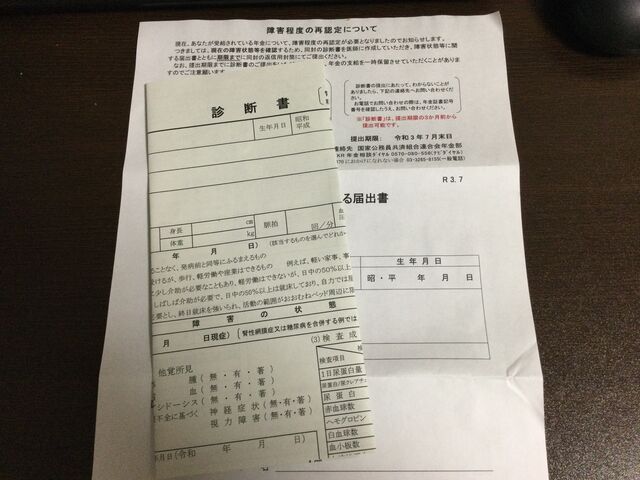 障害程度の再認定について
現在、あなたが受給されている年金について、障害程度の再認定が必要となりましたのでお知らせします。
つきましては、現在の障害状態等を確認するため、同封の診断書を医師に作成していただき、障害状態等に関
する届出書とともに期限までに同封の返信用封筒にてご提出ください。
なお、提出期限までに診断書のご提出を
、年金の支給を一時保留させていただくことがありま
すのでご注意願います。
診断書の提出にあたって、わからないことが
ありましたら、下記の連絡先へお問い合わせく
ださい。
お電話でお問い合わせの際は、年金証書記号
番号を確認したうえ、お問い合わせください。
※「診断書」は、提出期限の3か月前から
提出可能です。
提出期限: 令和3年7月末日
連絡先 国家公務員共済組合連合会年金部
KKR年金相談ダイヤル 0570-080-556(ナビダイヤル)
におかけになれない場合 03-3265-8155(一般電話)
R3.7
る届出書
生年月日
昭・平 年 月 日
診断書
生年月日
昭和
平成
身長 cm
体重 kg
脈拍 回/分
血
年 月 日)
(該当するものを選んでどれか
ることなく、発病前と同等にふるまえるもの
受けるが、歩行、軽労働や座業はできるもの 例えば、軽い家事、事
て少し介助が必要なこともあり、軽労働はできないが、日中の50%以上
しばしば介助が必要で、日中の50%以上は就床しており、自力では屋
要とし、終日就床を強いられ、活動の範囲がおおむねベッド周辺に限
障害の状態
月 日現症)
(腎性網膜症又は糖尿病を合併する例では
(3)検査成
検査項目
1日尿蛋白量
尿蛋白/尿クレアチニ
尿蛋白
赤血球数
ヘモグロビン
白血球数
血小板数
他覚所見
腫(無・有・著)
血(無・有・著)
シドーシス(無・有・著)
不全に基づく 神経症状(無・有・著)
視力障害(無・有・著)
年月日(令和 年 月 日)